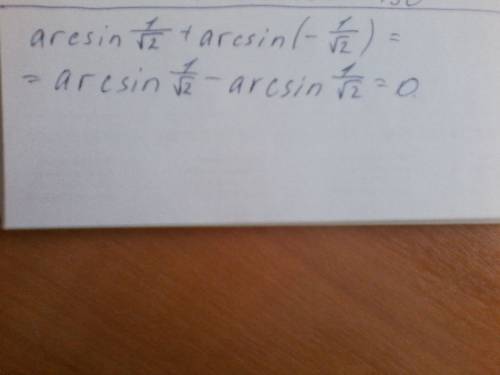 arcsin 1/√2 + arcsin(- 1/√2) =
= arcsin 1/√2 - arcsin 1/√2 = 0